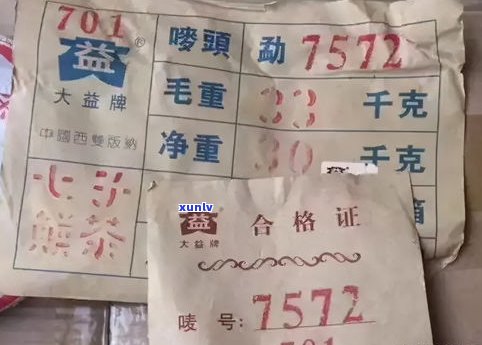 701
益®
大益牌
中國西雙版納
七子
餅茶
嘜頭
勐7572
毛重
33 千克
净重
30 千克
箱
xunlv
益
大益牌
合格证
唛号:7572
701